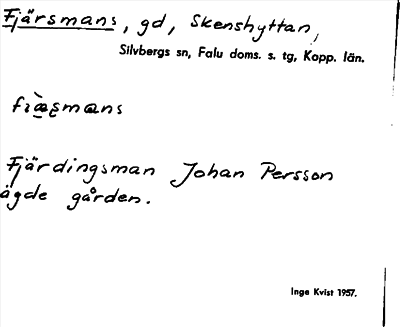 Fjärsmans, gd, Skenshyttan,
Silvbergs sn, Falu doms. s. tg, Kopp. län.
Fjärdingsman Johan Persson
ägde gården.
Inge Kvist 1957.